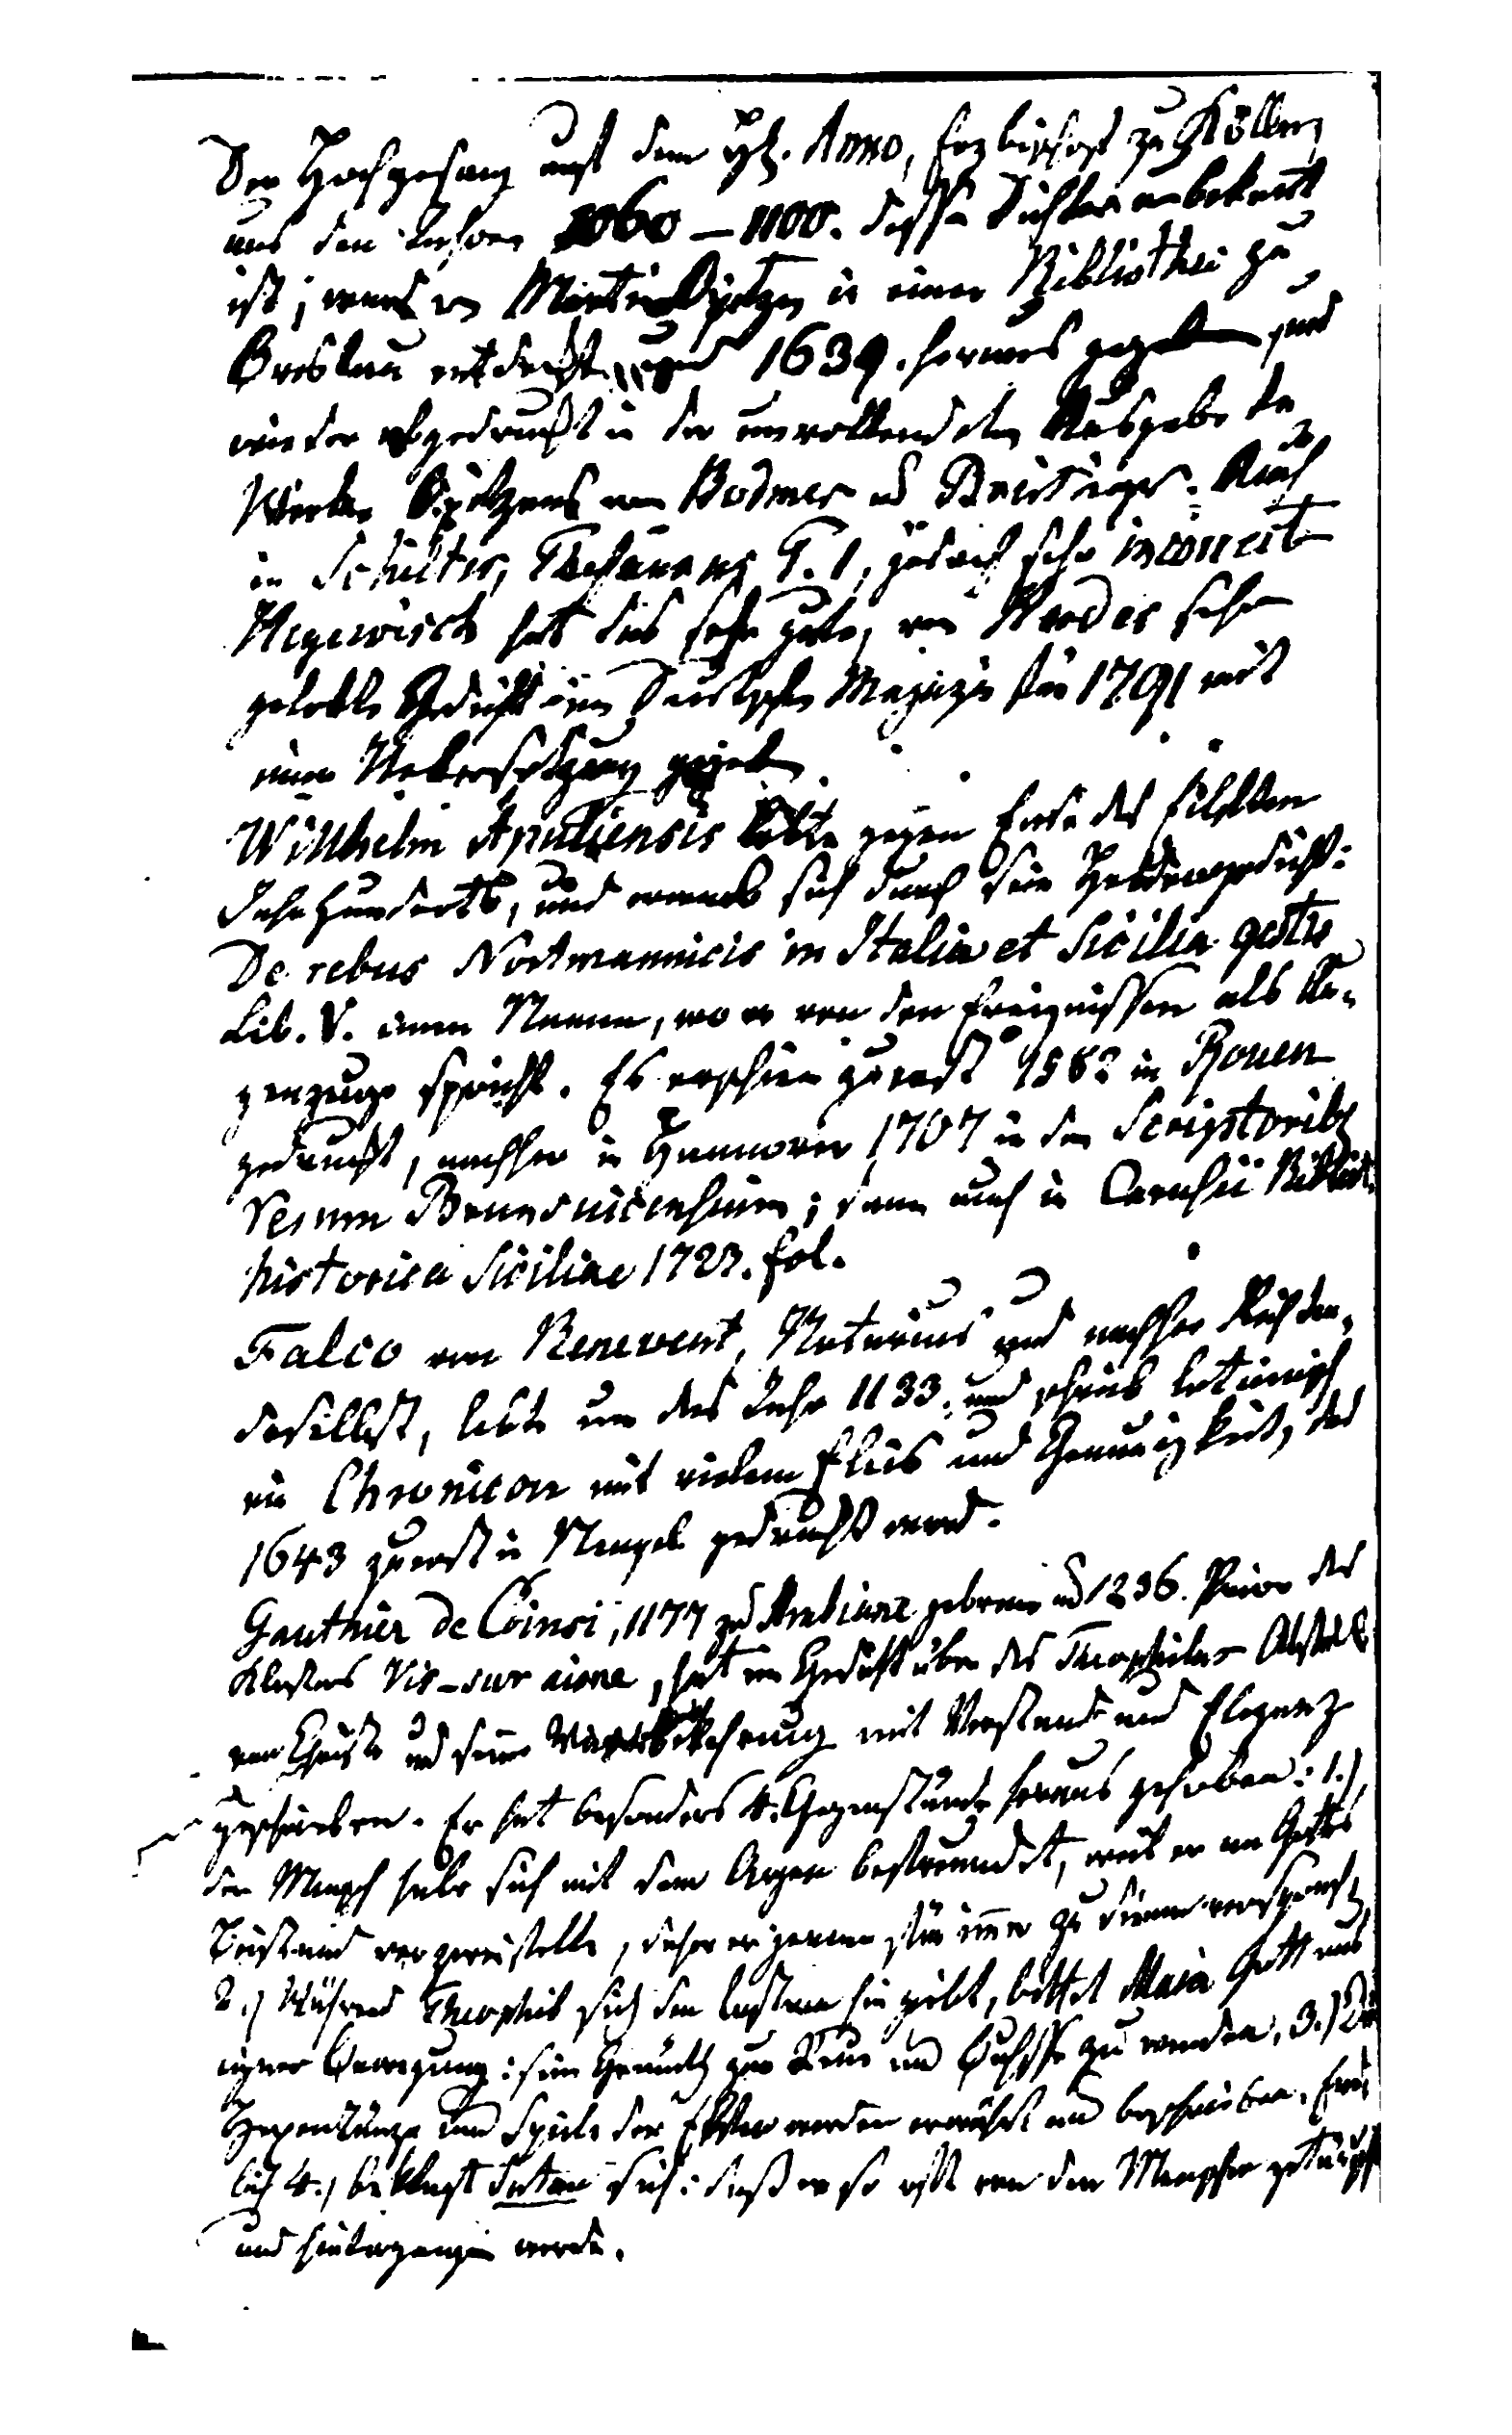 Der Hochgesang auf dem Hl. Anno, Erzbischof zu Kölln,
aus den Jahren 1060 – 1100. dessen Dichter unbekant
ist; ward von Martin Opitzen in einer Bibliothec zu
Breslau entdeckt, und 1639. heraus gegeben und
wieder abgedruckt in der unvollendeten Ausgabe der
Werke Opitzens von Bodmer und Breitinger. Auch
in Schilter, Thesaurus T. 1, jedoch sehr incorrect
Hegewisch hat das sehr gute, von Herder sehr
gelobte Gedicht im Deutschen Magazin für 1791 mit
einer Uebersetzung gegeben
Willhelm Apuliensis lebte gegen Ende des Eilften
Jahrhunderts, und erwarb sich durch sein Heldengedicht:
De rebus Nortmannicis in Italia et Sicilia gestis
Lib. V. einen Namen, wo er von den Ereignissen als
zeuge spricht. Es erschien zuerst 1582 in Rouen
gedruckt, nachher in Hannover 1707 in den Scriptorib.
rerum Brunsuicensium; dann auch in Carusii Biblioth.
historica Siciliae 1723. fol.
Falco von Benevent, Notarius und nachher Richter
daselbst, lebte um das Jahr 1133. und schrieb lateinisch
ein Chronicon mit vielem Fleis und Genauigkeit, das
1643 zuerst in Neapel gedruckt ward.
Gauthier de Coinsi, 1177 zu Ambiane gebren und 1236. Prior des
Klosters Vis-sur aisne, hat ein Gedicht über des Theophilus Abfall
von Christo und seine Bekehrung mit Verstand und Eleganz
geschrieben. Er hat besonders 4. Gegenstände heraus gehoben: 1.)
der Mensch habe sich mit dem Argen befreundet, weil er an Gottes
Beistand verzweifelte, daher er jenem für immer zu dienen versprach,
2.) Während Theophil sich den Lastern hin gibt, bittet Maria Gott aus
eigner Bewegung: sein Gemüth zur Reue und Buhsse zu wenden, 3.) Die
Hexentänze und Spiele der Elfen werden erwähnt und beschrieben. End
lich 4.) beklagt Satan sich: daß er so oft von den Menschen getäuscht
und hintergangen werde.